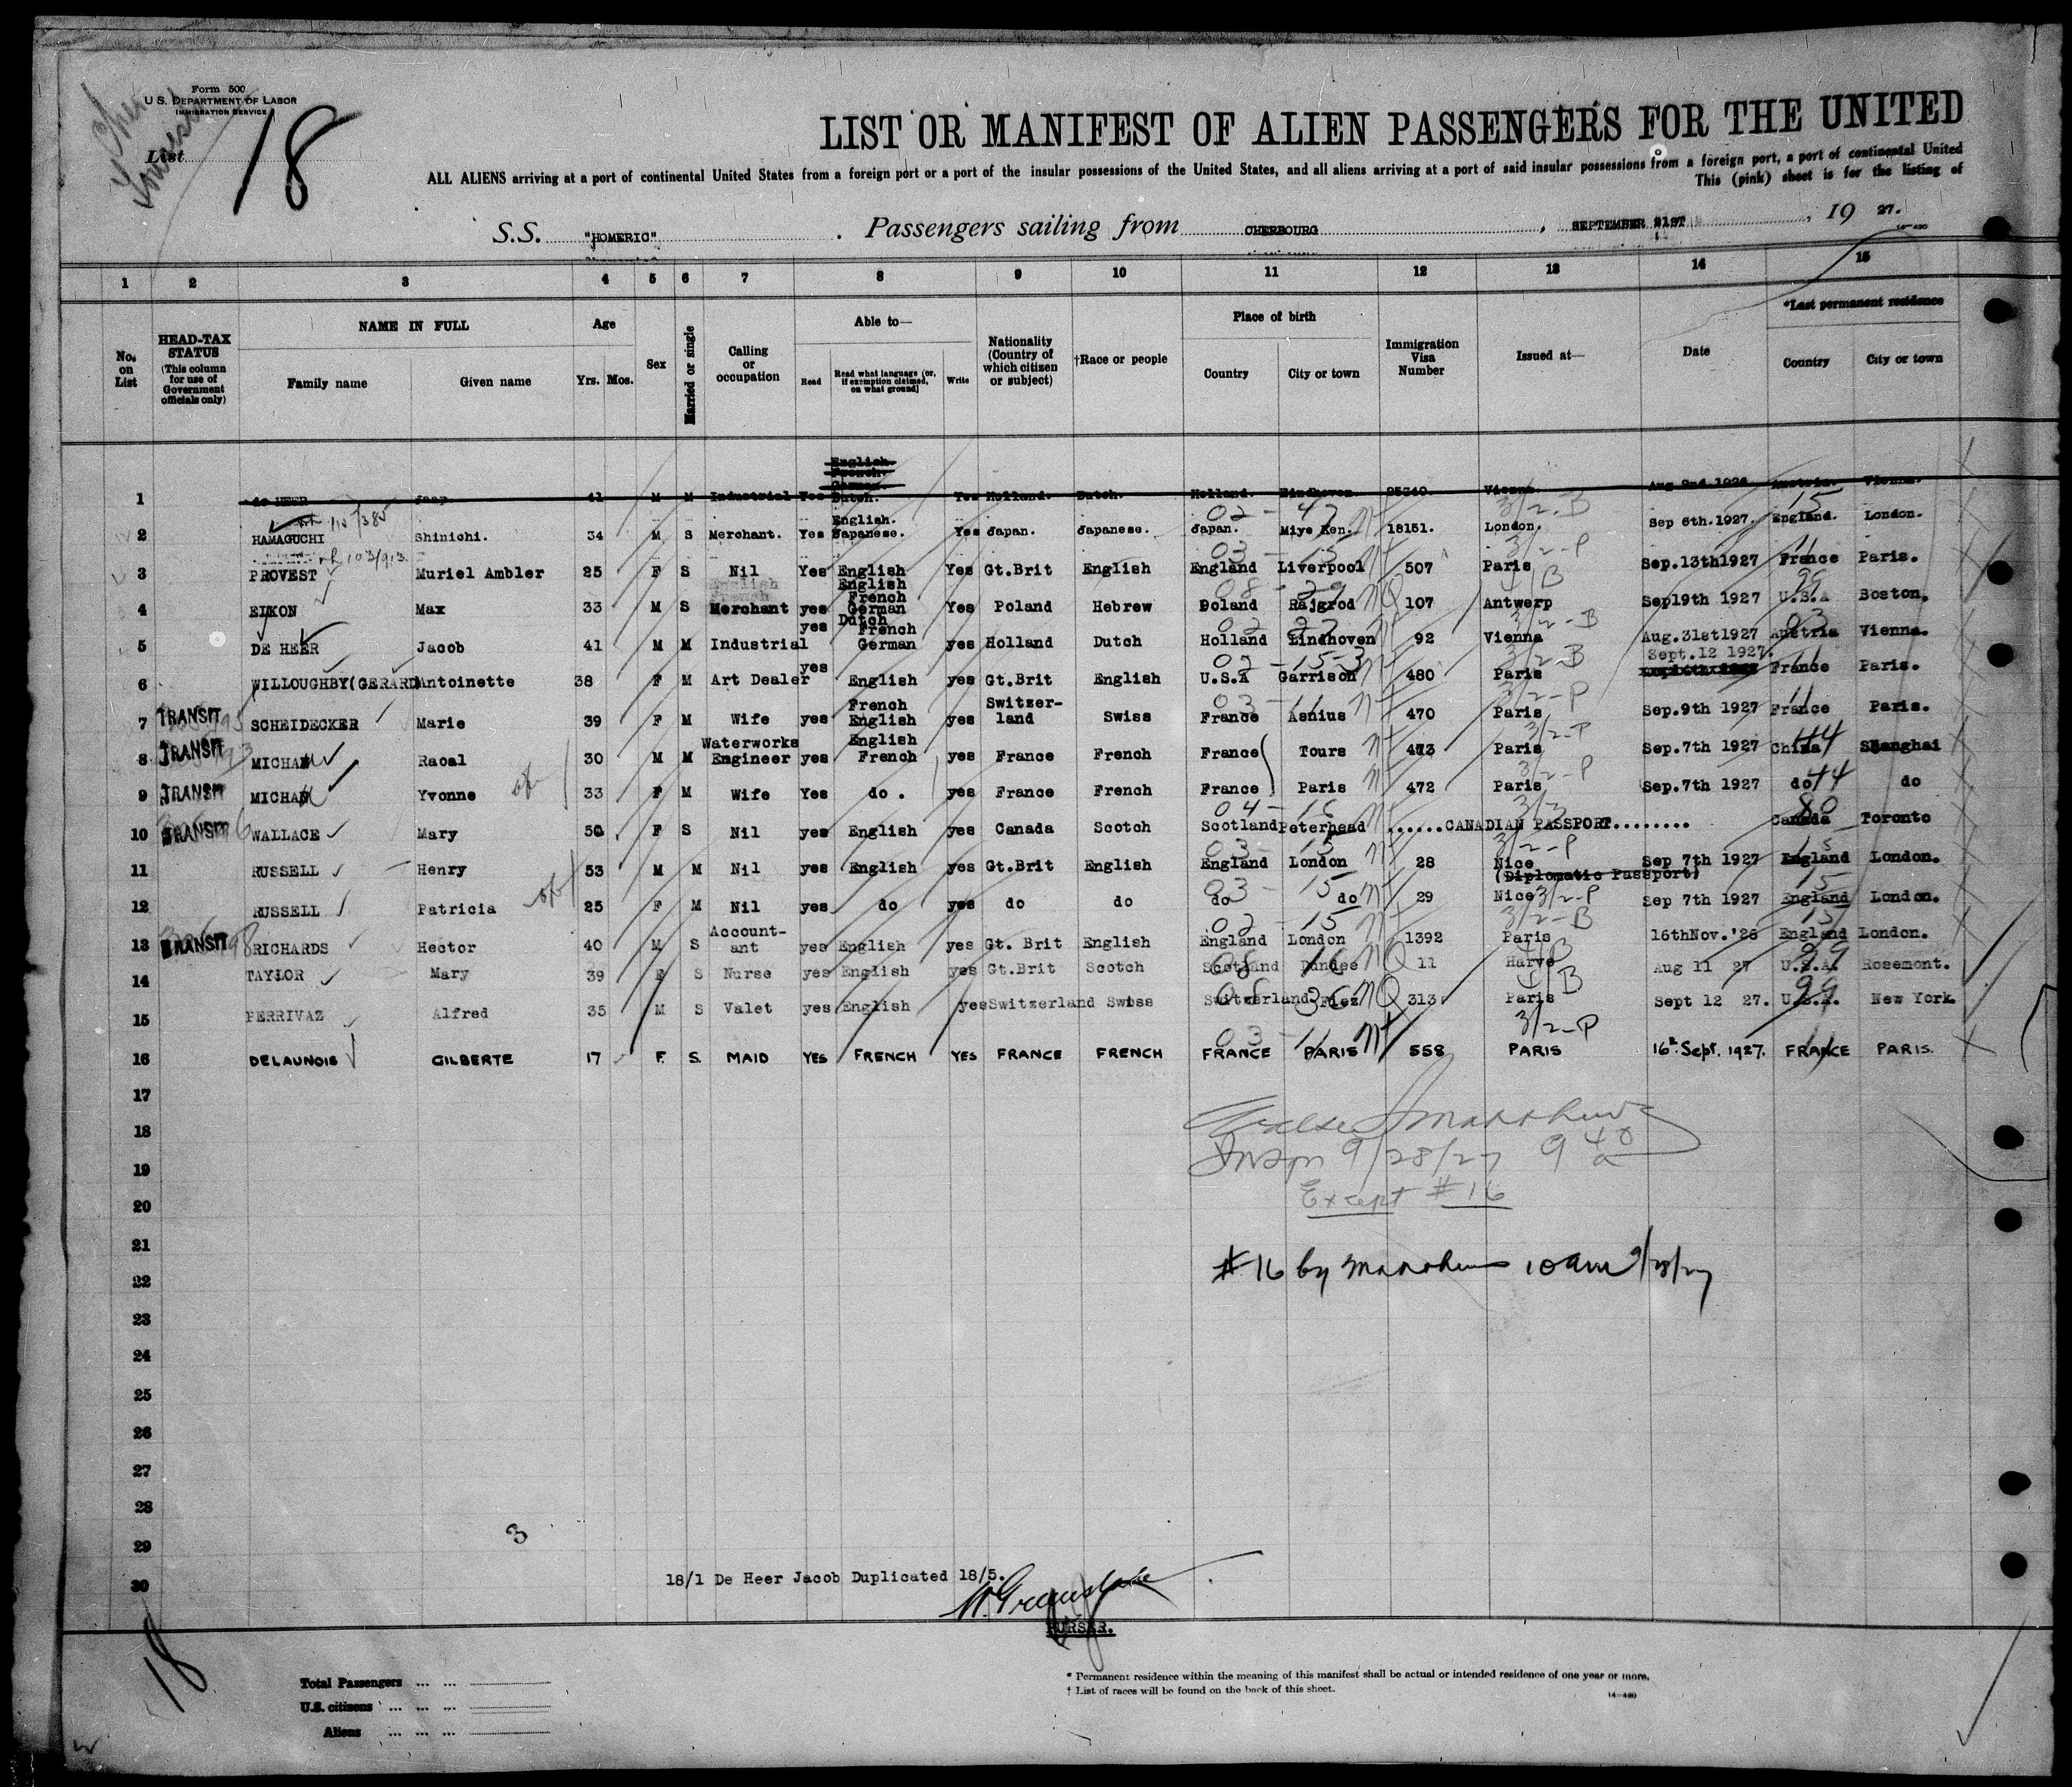 Form 500
U. S. DEPARTMENT OF LABOR
IMMIGRATION SERVICE
List 18
LIST OR MANIFEST OF ALIEN PASSENGERS FOR THE UNITED
ALL ALIENS arriving at a port of continental United States from a foreign port or a port of the insular possessions of the United States, and all aliens arriving at a port of said insular possessions from a foreign port, a port of continental United
This (pink) sheet is for the listing of
S.S. "HOMERIC". Passengers sailing from CHERBOURG, SEPTEMBER 21ST, 19 27.
14—480
1 2 3 4 5 6 7 8 9 10 11 12 13 14 15
No. on List
HEAD-TAX STATUS (This column for use of Government officials only)
NAME IN FULL
Family name Given name
Age
Yrs. Mos.
Sex
Married or single
Calling or occupation
Able to—
Read Read what language [or, if exemption claimed, on what ground] Write
Nationality (Country of which citizen or subject)
†Race or people
Place of birth
Country City or town
Immigration Visa Number
Issued at—
Date
*Last permanent residence
Country City or town
1 de HEER Jaap 41 M M Industrial Yes English. French. German. Dutch. Yes Holland. Dutch. Holland. Eindhoven. Vienna. Aug 2nd 1926 Austria. Vienna.
02 - 47 3/2-B 15
2 HAMAGUCHI Shinichi. 34 M S Merchant. Yes English. Japanese. Yes Japan. Japanese. Japan. Miye Ken. 18151. London. Sep 6th.1927. England. London.
03 - 15 3/2-P 11
3 PROVEST Muriel Ambler 25 F S Nil Yes English Yes Gt.Brit English England Liverpool 507 Paris Sep.13th1927 France Paris.
4 EIKON Max 33 M S Merchant yes English French German Dutch Yes Poland Hebrew Poland Rajgrod 107 Antwerp Sep19th 1927 U.S.A Boston.
5 DE HEER Jacob 41 M M Industrial yes French German yes Holland Dutch Holland Eindhoven 92 Vienna Aug.31st1927 Austria Vienna.
6 WILLOUGHBY(GERARD) Antoinette 38 F M Art Dealer yes English yes Gt.Brit English U.S.A Garrison 480 Paris Sept.12 1927. France Paris.
7 TRANSIT SCHEIDECKER Marie 39 F M Wife yes French English yes Switzerland Swiss France Asnius 470 Paris Sep.9th 1927 France Paris.
8 TRANSIT MICHAU Raoal 30 M M Waterworks Engineer yes English French yes France French France Tours 473 Paris Sep.7th 1927 China 44 Shanghai
9 TRANSIT MICHAU Yvonne 33 F M Wife Yes do . yes France French France Paris 472 Paris Sep.7th 1927 do 44 do
10 TRANSIT WALLACE Mary 50 F S Nil yes English yes Canada Scotch Scotland Peterhead ......CANADIAN PASSPORT........ Canada Toronto
11 RUSSELL Henry 53 M M Nil yes English yes Gt.Brit English England London 28 Nice Sep 7th 1927 England London.
(Diplomatic Passport)
12 RUSSELL Patricia 25 F M Nil yes do yes do do do do 29 Nice 3/2-P Sep 7th 1927 England London.
13 TRANSIT RICHARDS Hector 40 M S Accountant yes English yes Gt. Brit English England London 1392 Paris 16thNov.'26 England London.
14 TAYLOR Mary 39 F S Nurse yes English yes Gt.Brit Scotch Scotland Dundee 11 Harve Aug 11 27 U.S.A. Rosemont.
15 PERRIVAZ Alfred 35 M S Valet yes English yes Switzerland Swiss Switzerland Fiez 313 Paris Sept 12 27. U.S.A. New York.
03 - 11 3/2-P
16 DELAUNOIS GILBERTE 17 F. S. MAID YES FRENCH YES FRANCE FRENCH FRANCE PARIS 558 PARIS 16th Sept. 1927. FRANCE PARIS.
17
18
19
Insp 9/28/27 9 40 a
20
Except #16
21
22
#16 by 10 am 9/28/27
23
24
25
26
27
28
29
3
30
18/1 De Heer Jacob Duplicated 18/5.
PURSER.
18
Total Passengers
U.S. citizens
Aliens
* Permanent residence within the meaning of this manifest shall be actual or intended residence of one year or more.
† List of races will be found on the back of this sheet.
14—480